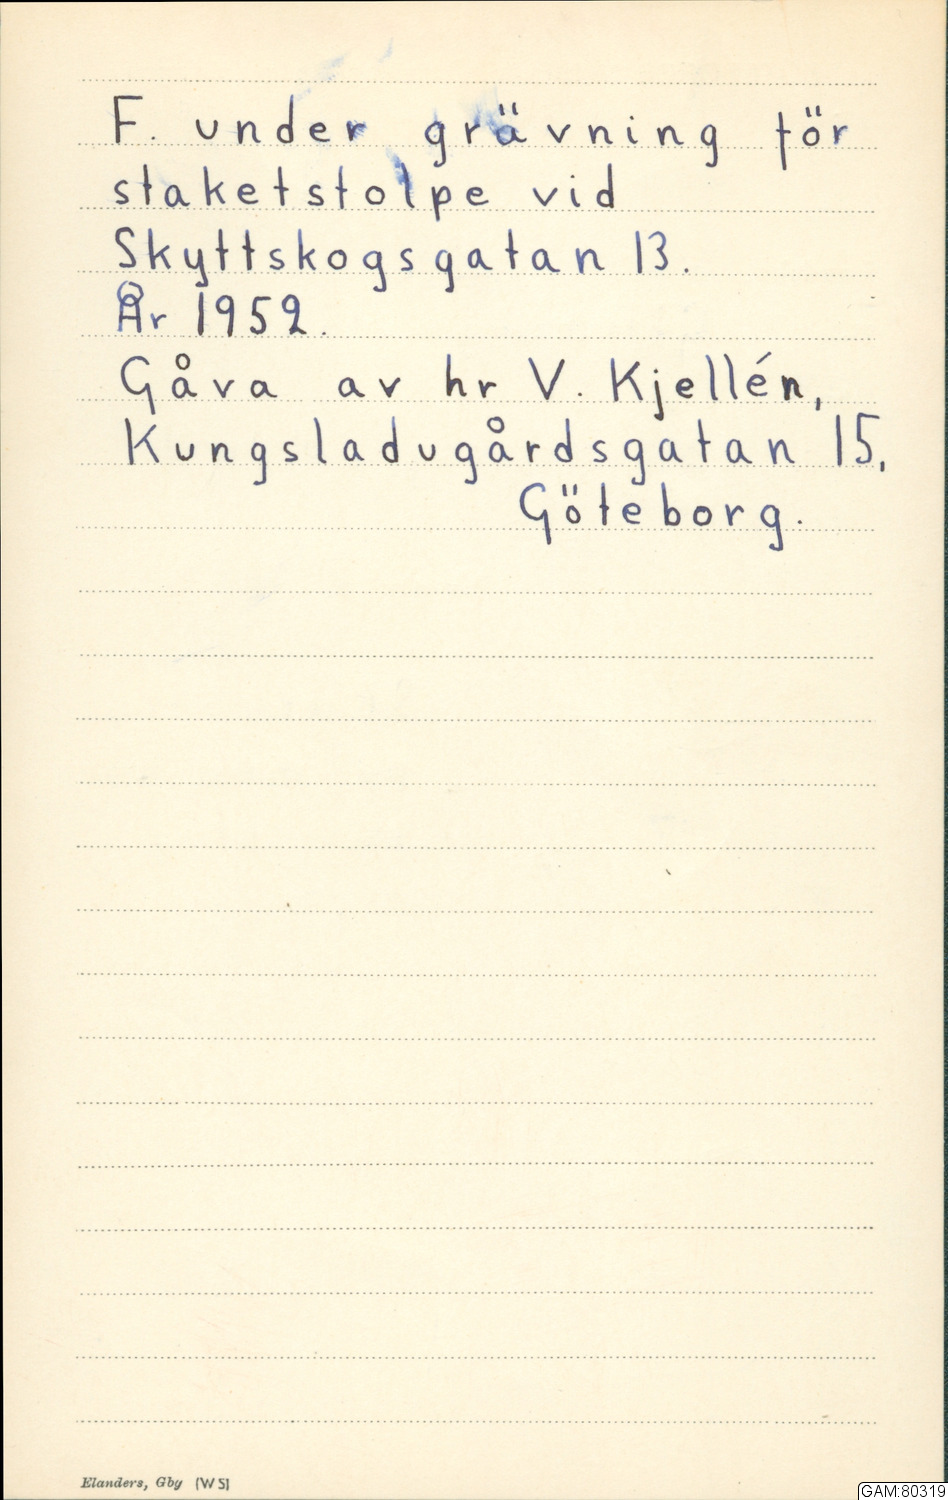 F. under grävning för
staketstolpe vid
Skyttskogsgatan 13.
År 1952.
Gåva av hr V. Kjellén,
Kungsladugårdsgatan 15,
Göteborg.
Elanders, Gby (W 5)
GAM:80319